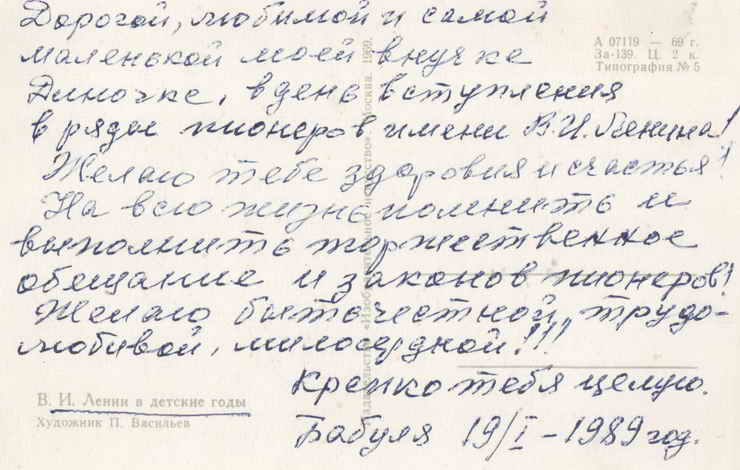 Дорогой, любимой и самой
маленькой моей внучке
Диночке, в день вступления
в ряды пионеров имени В.И. Ленина!
Желаю тебе здоровия и счастья!
На всю жизнь помнить и
выполнить торжественное
обещание и законов пионеров!
Желаю быть честной, трудо-
любивой, милосердной!!!
Крепко тебя целую.
Бабуля 19/I - 1989 год.
А 07119 — 69 г.
За-139. Ц. 2 к.
Типография № 5
Издательство «Изобразительное искусство». Москва. 1969.
В. И. Ленин в детские годы
Художник П. Васильев